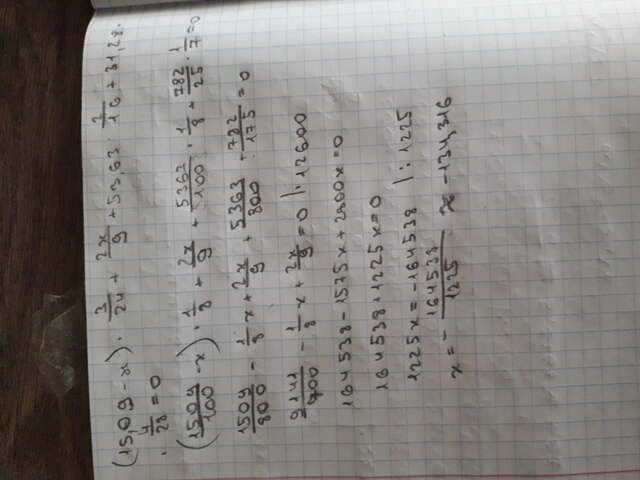 (15,09 - x) · 3/24 + 2x/9 + 53,63 · 2/16 + 31,28 ·
· 4/28 = 0
(1509/100 - x) · 1/8 + 2x/9 + 5363/100 · 1/8 + 782/25 · 1/7 = 0
1509/800 - 1/8 x + 2x/9 + 5363/800 + 782/175 = 0
9141/700 - 1/8 x + 2x/9 = 0 |· 12600
164538 - 1575x + 2800x = 0
164538 + 1225x = 0
1225x = -164538 | : 1225
x = - 164538/1225 ≈ -134,316